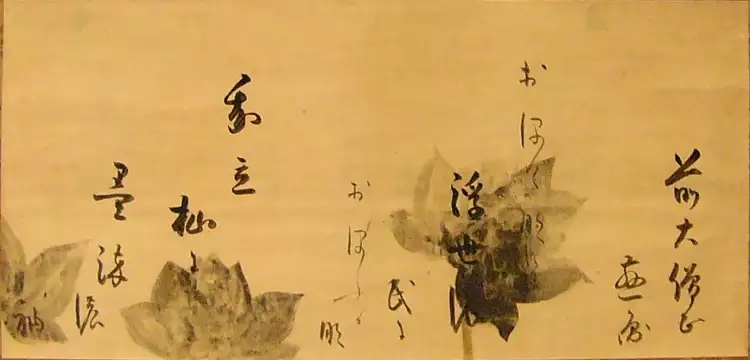 前大僧正
慈圓
おほけなく
浮世の
民に
おほふか
な
我立
杣に
墨染
の
袖